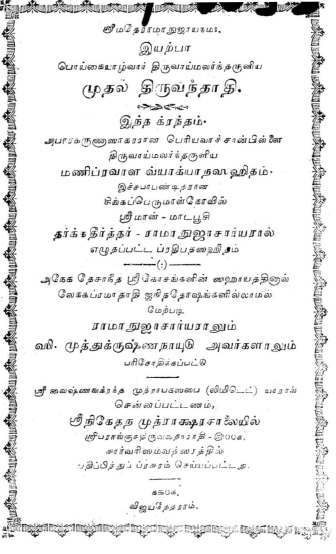 ஸ்ரீமதேராமாநுஜாயநம:.
இயற்பா
பொய்கையாழ்வார் திருவாய்மலர்ந்தருளிய
முதல் திருவந்தாதி.
இந்த க்ரந்தம்.
அபாரகருணாகரரான பெரியவாச்சான்பிள்ளை
திருவாய்மலர்ந்தருளிய
மணிப்ரவாள வ்யாக்யாநஸஹிதம்.
இச்சபாபண்டிதரான
சிங்கப்பெருமாள்கோவில்
ஸ்ரீமான் - மாடபூசி
தர்க்கதீர்த்தர் - ராமாநுஜாசார்யரால்
எழுதப்பட்ட ப்ரதிபதஸஹிதம்
அநேக தேசாநீத ஸ்ரீகோசங்களின் ஸஹாயத்தினால்
லேககப்ரமாதாதி ஜநிததோஷங்களில்லாமல்
மேற்படி
ராமாநுஜாசார்யராலும்
வி. முத்துக்ருஷ்ணநாயுடு அவர்களாலும்
பரிசோதிக்கப்பட்டு
ஸ்ரீ வைஷ்ணவக்ரந்த முத்ராபகஸபை (லிமிடெட்) யாரால்
சென்னப்பட்டணம்,
ஸ்ரீநிகேதந முத்ராக்ஷரசாலையில்
சார்வரிஸம்வத்ஸரத்தில்
பதிப்பித்துப் ப்ரசுரம் செய்யப்பட்டது.
௧௯௦௧.